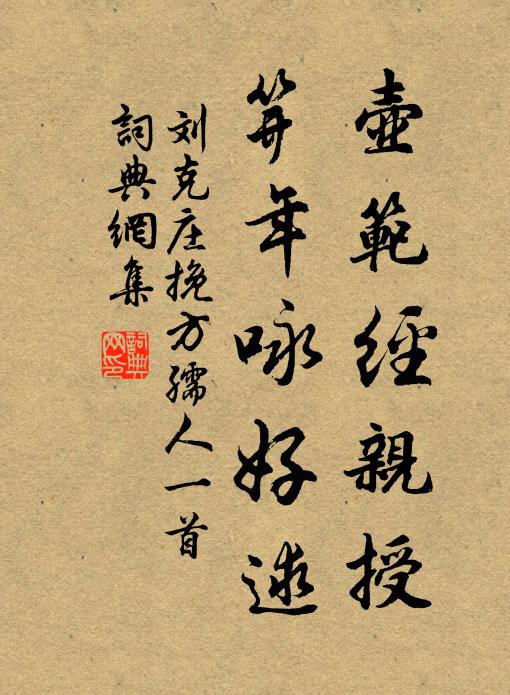 壺範經親授
笄年咏好逑
刘克庄挽方孺人一首
詞典網集
詞典網印